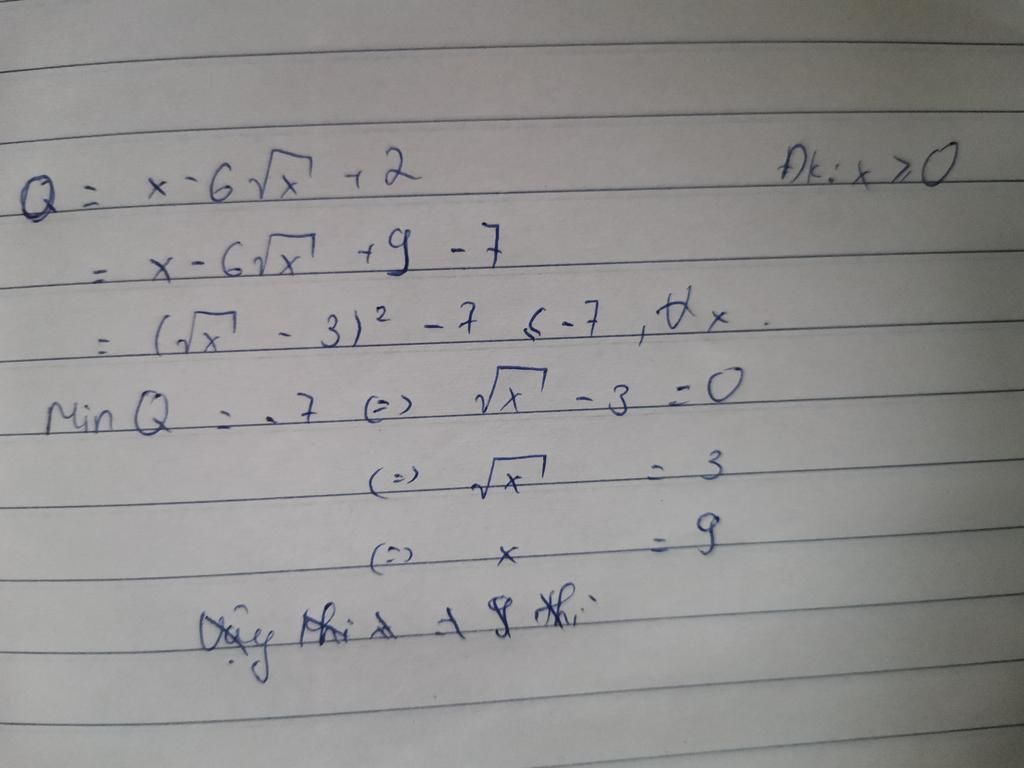 Q = x - 6√x + 2 Đk: x ≥ 0
= x - 6√x + 9 - 7
= (√x - 3)² - 7 ≤ -7, ∀x.
Min Q = -7 (=) √x - 3 = 0
(=) √x = 3
(=) x = 9
Vậy khi x = 9 thì